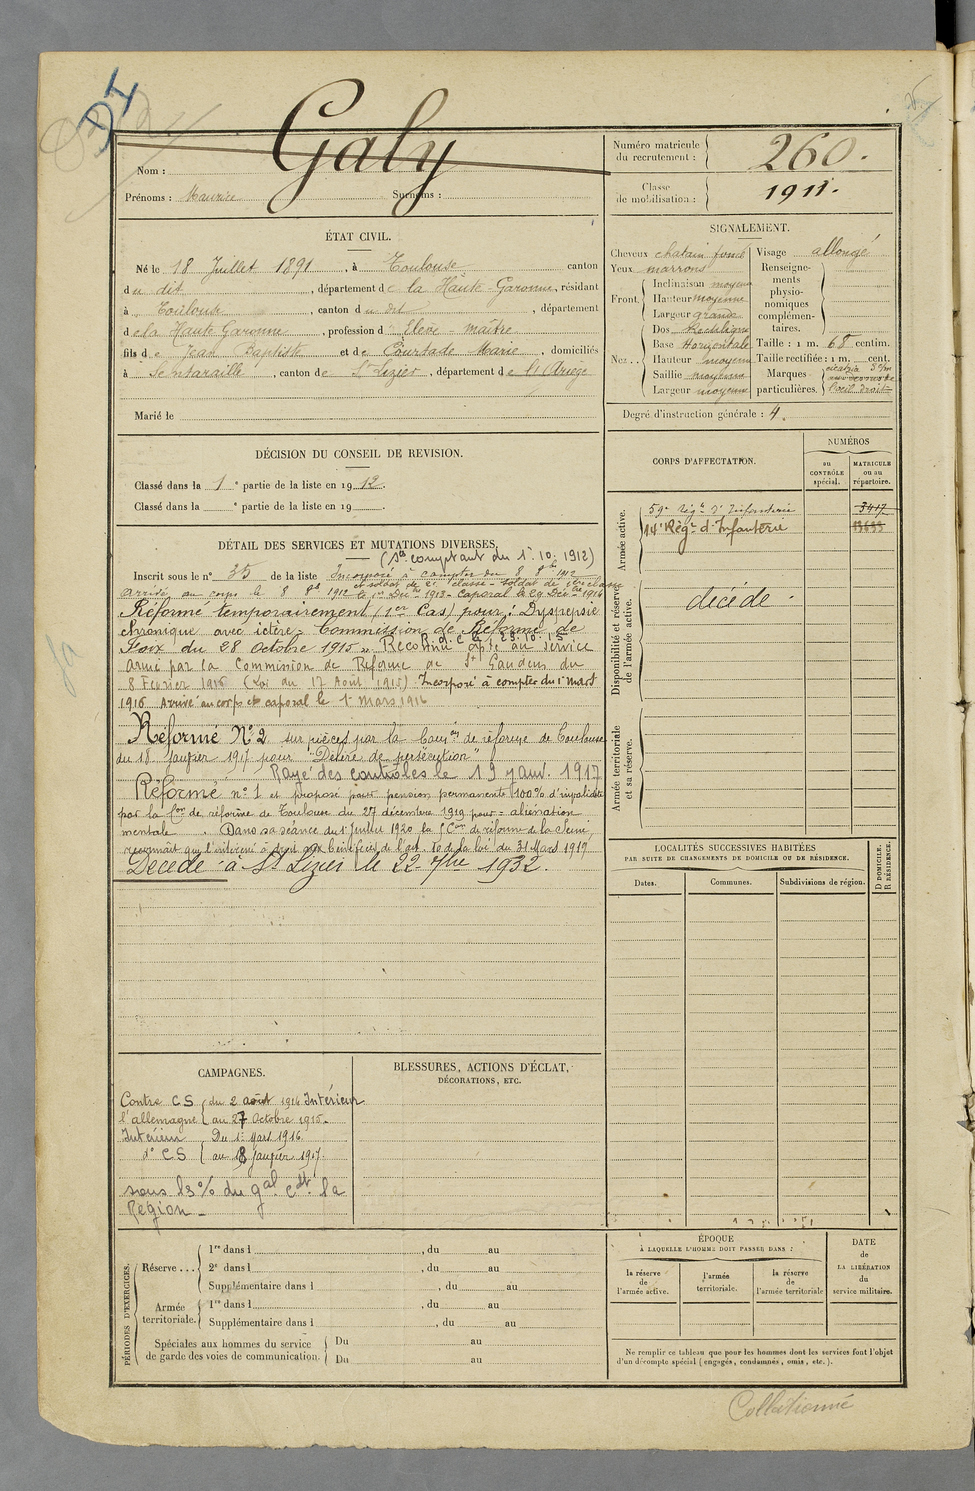 DI
Nom : Galy
Prénoms : Maurice Surnoms :
Numéro matricule du recrutement : 260.
Classe de mobilisation : 1911.
ÉTAT CIVIL.
Né le 18 Juillet 1891, à Toulouse canton
du dit, département de la Haute-Garonne, résidant
à Toulouse, canton du dit, département
de la Haute Garonne, profession d' Elève-maître
fils de Jean Baptiste et de Courtade Marie, domiciliés
à Sentaraille, canton de St Lizier, département de l'Ariège
Marié le
SIGNALEMENT.
Cheveux chatain foncé
Yeux marrons
Front. Inclinaison moyenne
Hauteur moyenne
Largeur grande
Nez. Dos Rectiligne
Base Horizontale
Hauteur moyenne
Saillie moyenne
Largeur moyenne
Visage allongé
Renseignements physionomiques complémentaires.
Taille : 1 m. 68 centim.
Taille rectifiée : 1 m. cent.
Marques particulières. cicatrice
l'oeil droit
Degré d'instruction générale : 4.
DÉCISION DU CONSEIL DE REVISION.
Classé dans la 1e partie de la liste en 1912.
Classé dans la e partie de la liste en 19 .
DÉTAIL DES SERVICES ET MUTATIONS DIVERSES.
(Se comptant du 1er. 10. 1912)
Inscrit sous le n° 35 de la liste Incorporé à compter du 8 8bre 1912
et soldat de 2e classe - Soldat de 1ère classe
arrivé au corps le 8 8bre 1912 le 1er Dec 1913 - Caporal le 29 Décbre 1914
Réformé temporairement (1er Cas) pour : Dyspepsie
chronique avec ictère - Commission de Réforme de
Foix du 28 Octobre 1915 R.d.C le 29.10.15
Reconnu apte au service
armé par la Commission de Réforme de St Gaudens du
8 Février 1916 (Loi du 17 Août 1915) Incorporé à compter du 1er mars
1916 Arrivé au corps et caporal le 1er mars 1916
Réformé N° 2 sur pièces par la Comon de réforme de Toulouse
du 18 Janvier 1917 pour "Délire de persécution"
Rayé des contrôles le 19 janv. 1917
Réformé n° 1 et proposé pour pension permanente 100% d'invalidité
par la Con de réforme de Toulouse du 27 décembre 1919 pour = aliénation
mentale. Dans sa séance du 1er Juillet 1920 la Con de réforme de la Seine,
reconnait que l'intéressé a droit aux bénéfices de l'art. 10 de la loi du 31 Mars 1919
Décédé à St Lizier le 22 7bre 1932.
CORPS D'AFFECTATION.
NUMÉROS
au CONTRÔLE spécial.
MATRICULE ou au répertoire.
Armée active.
59e Régt d'Infanterie 3417
14e Régt d'Infanterie
Disponibilité et réserve de l'armée active.
décédé
Armée territoriale et sa réserve.
LOCALITÉS SUCCESSIVES HABITÉES
PAR SUITE DE CHANGEMENTS DE DOMICILE OU DE RÉSIDENCE.
Dates.
Communes.
Subdivisions de région.
D DOMICILE.
R RÉSIDENCE.
CAMPAGNES.
Contre CS du 2 août 1914 Intérieur
l'allemagne au 27 Octobre 1915.
Intérieur Du 1er Mars 1916
d° CS au 18 Janvier 1917.
sous les % du gal Cdt la
Région
BLESSURES, ACTIONS D'ÉCLAT,
DÉCORATIONS, ETC.
PÉRIODES D'EXERCICES.
Réserve ...
1re dans l , du au
2e dans l , du au
Supplémentaire dans l , du au
Armée territoriale.
1re dans l , du au
Supplémentaire dans l , du au
Spéciales aux hommes du service
de garde des voies de communication.
Du au
Du au
ÉPOQUE
À LAQUELLE L'HOMME DOIT PASSER DANS :
la réserve de l'armée active.
l'armée territoriale.
la réserve de l'armée territoriale
DATE
de
LA LIBÉRATION
du
service militaire.
Ne remplir ce tableau que pour les hommes dont les services font l'objet
d'un décompte spécial (engagés, condamnés, omis, etc.).
Collationné